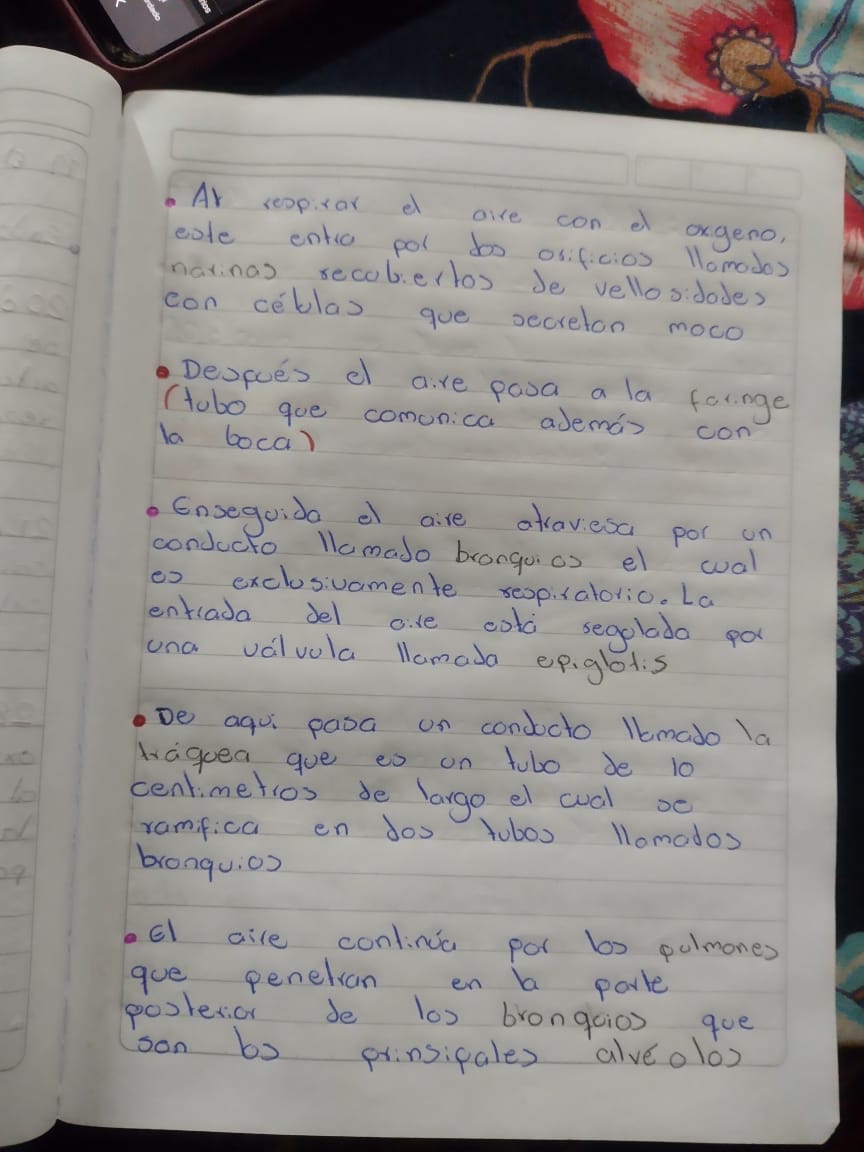 • Al respirar el aire con el oxgeno,
este entra por dos orificios llamados
narinas recubiertos de vellosidades
con céblas que secretan moco
• Después el aire pasa a la faringe
(tubo que comunica además con
la boca)
• Enseguida el aire atraviesa por un
conducto llamado bronquios el cual
es exclusivamente respiratorio. La
entrada del aire está regolada por
una válvula llamada epiglotis
• De aqui pasa un conducto llamado la
tráquea que es un tubo de 10
centimetros de largo el cual se
ramifica en dos tubos llamados
bronquios
• El aire continúa por los pulmones
que penetran en la parte
posterior de los bronquios que
son los prinsipales alvéolos